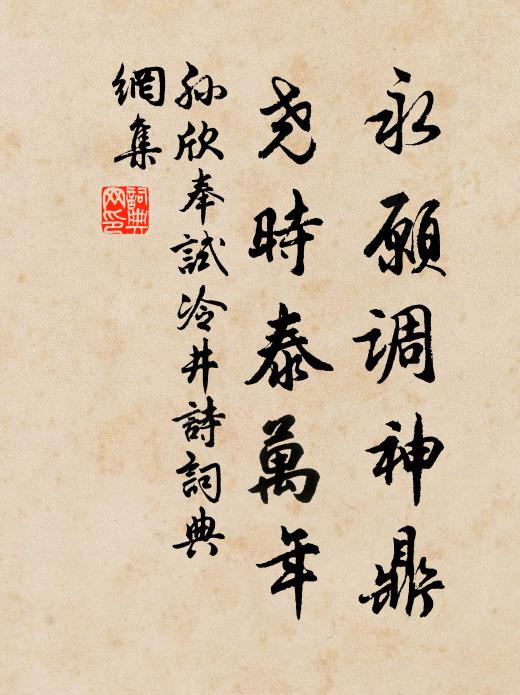 永願調神鼎
堯時泰萬年
孫欣奉試冷井詩詞典
網集
詞典網印